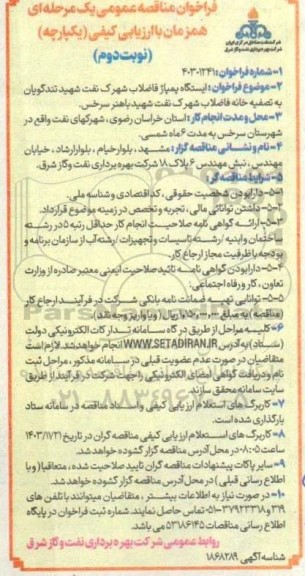 فراخوان مناقصه عمومی یک مرحله ای
همزمان با ارزیابی کیفی (یکپارچه)
(نوبت دوم)
۱- شماره فراخوان: ۴۰۳-۱۲۳۴۱
۲- موضوع فراخوان: ایستگاه پمپاژ فاضلاب شهرک نفت شهید تندگویان
به تصفیه خانه فاضلاب شهرک نفت شهید باهنر سرخس.
۳- محل و مدت انجام کار: استان خراسان رضوی، شهرکهای نفت واقع در
شهرستان سرخس به مدت ۶ ماه شمسی.
۴- نام و نشانی مناقصه گزار: مشهد، بلوار خیام، بلوار ارشاد، خیابان
مهندس، نبش مهندس ۶ پلاک ۱۸ شرکت بهره برداری نفت و گاز شرق.
۵- شرایط مناقصه گر:
۵-۱- دارا بودن شخصیت حقوقی، کد اقتصادی و شناسه ملی.
۵-۲- داشتن توانائی مالی، تجربه و تخصص در زمینه موضوع قرارداد.
۵-۳- ارائه گواهی نامه صلاحیت انجام کار حداقل رتبه ۵ در رشته
ساختمان و ابنیه / رشته تاسیسات و تجهیزات / رشته آب از سازمان برنامه و
بودجه با ظرفیت مجاز ارجاع کار.
۵-۴- دارا بودن گواهی نامه تائید صلاحیت ایمنی معتبر صادره از وزارت
تعاون، کار و رفاه اجتماعی.
۵-۵- توانایی تهیه ضمانت نامه بانکی شرکت در فرآیند ارجاع کار
(مناقصه) به مبلغ ریال (و یا واریز وجه نقد)
۶- کلیه مراحل از طریق درگاه سامانه تدارکات الکترونیکی دولت
(ستاد) به آدرس WWW.SETADIRAN.IR انجام خواهد شد. لازم است
متقاضیان در صورت عدم عضویت قبلی در سامانه مذکور، مراحل ثبت
نام و دریافت گواهی امضای الکترونیکی را جهت شرکت در فرآیند از طریق
سایت سامانه محقق سازند.
۷- کاربرگ های استعلام ارزیابی کیفی و اسناد مناقصه در سامانه ستاد
بارگذاری شده است.
۸- کاربرگ های استعلام ارزیابی کیفی مناقصه گران در تاریخ ۱۴۰۳/۱۱/۲۱
ساعت ۸:۰۵ در محل آدرس مناقصه گزار گشوده خواهد شد.
۹- سایر پاکات پیشنهادات مناقصه گران تایید صلاحیت شده، متعاقبا (و با
اطلاع رسانی قبلی) در محل آدرس مناقصه گزار گشوده خواهد شد.
۱۰- در صورت نیاز به اطلاعات بیشتر، متقاضیان میتوانند با تلفن های
۳۱۹ و ۳۷۹۲۳۳۱۸-۰۵۱ تماس حاصل نمایند. شماره ثبت فراخوان در پایگاه
اطلاع رسانی مناقصات ۵۳۸۶۱۴۵ می باشد.
روابط عمومی شرکت بهره برداری نفت و گاز شرق
شناسه آگهی ۱۸۶۸۲۸۹